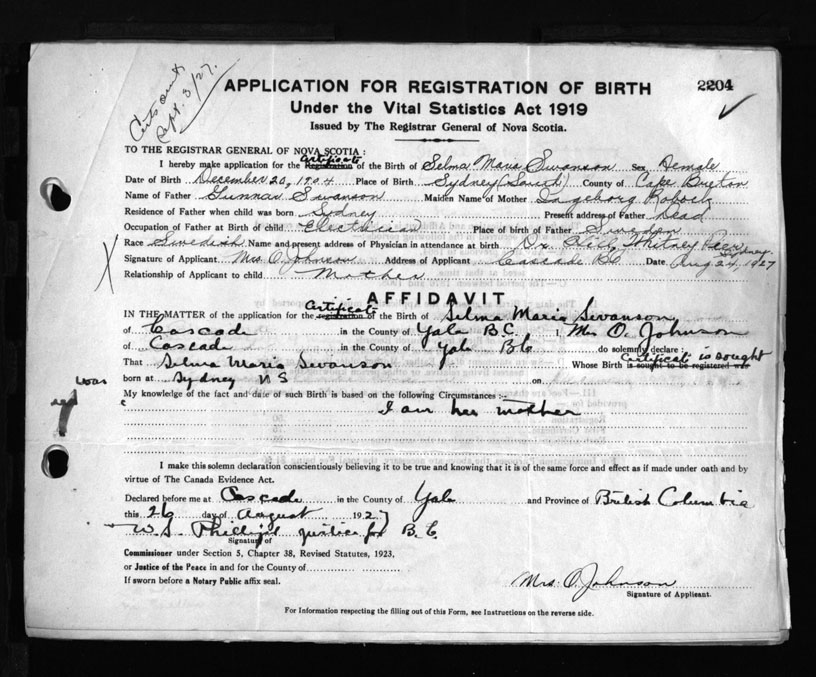 Certs out
Sept. 3/27.
APPLICATION FOR REGISTRATION OF BIRTH
2204
Under the Vital Statistics Act 1919
Issued by The Registrar General of Nova Scotia.
TO THE REGISTRAR GENERAL OF NOVA SCOTIA:
Certificate
I hereby make application for the Registration of the Birth of Selma Maria Swanson Sex Female
Date of Birth December 20, 1904 Place of Birth Sydney (South) County of Cape Breton
Name of Father Gunnar Swanson Maiden Name of Mother Ingeborg
Residence of Father when child was born Sydney Present address of Father Dead
Occupation of Father at Birth of child Electrician Place of birth of Father Sweden
Race Swedish Name and present address of Physician in attendance at birth Dr. Whitney Pier Sydney
Signature of Applicant Mrs O. Johnson Address of Applicant Cascade BC Date Aug 24, 1927
Relationship of Applicant to child Mother
AFFIDAVIT
Certificate
IN THE MATTER of the application for the registration of the Birth of Selma Maria Swanson
of Cascade in the County of Yale BC. I, Mrs O. Johnson
of Cascade in the County of Yale BC do solemnly declare:
Certificate is sought
That Selma Maria Swanson Whose Birth is sought to be registered was
was
born at Sydney N S on
My knowledge of the fact and date of such Birth is based on the following Circumstances:-
I am her mother
I make this solemn declaration conscientiously believing it to be true and knowing that it is of the same force and effect as if made under oath and by
virtue of The Canada Evidence Act.
Declared before me at Cascade in the County of Yale and Province of British Columbia
this 26 day of August 1927
W.S. Phillips justice for B.C.
Signature of
Commissioner under Section 5, Chapter 38, Revised Statutes, 1923,
or Justice of the Peace in and for the County of
If sworn before a Notary Public affix seal.
Mrs. O. Johnson
Signature of Applicant.
For Information respecting the filling out of this Form, see Instructions on the reverse side.